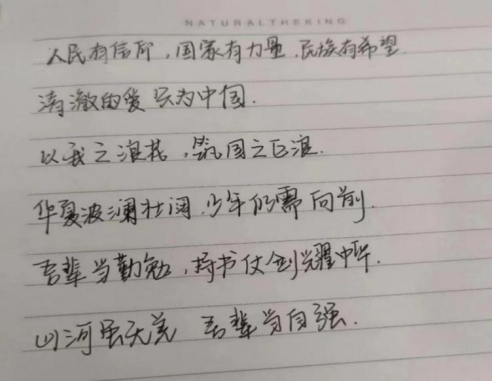 NATURALTHEKING
人民有信仰，国家有力量.民族有希望
清澈的爱 只为中国.
以我之浪花，筑国之巨浪.
华夏波澜壮阔.少年仍需向前.
吾辈当勤勉，持书仗剑耀中华.
山河虽无恙 吾辈当自强.